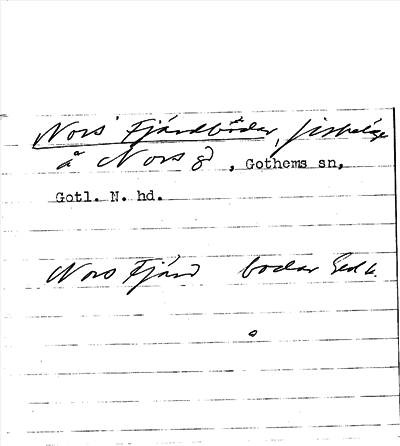 Nors Fjärdbodar, fiskeläge
å Nors g, Gothems sn,
Gotl. N. hd.
Nors Fjärd bodar Ged k.